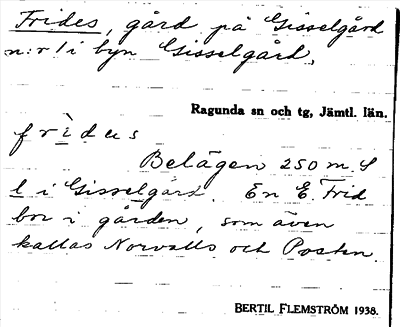 Frides, gård på Gisselgård
n:r 1 i byn Gisselgård.
Ragunda sn och tg, Jämtl. län.
frìdes
Belägen 250 m S
l i Gisselgård. En E. Frid
bor i gården, som även
kallas Norvalls och Posten.
BERTIL FLEMSTRÖM 1938.